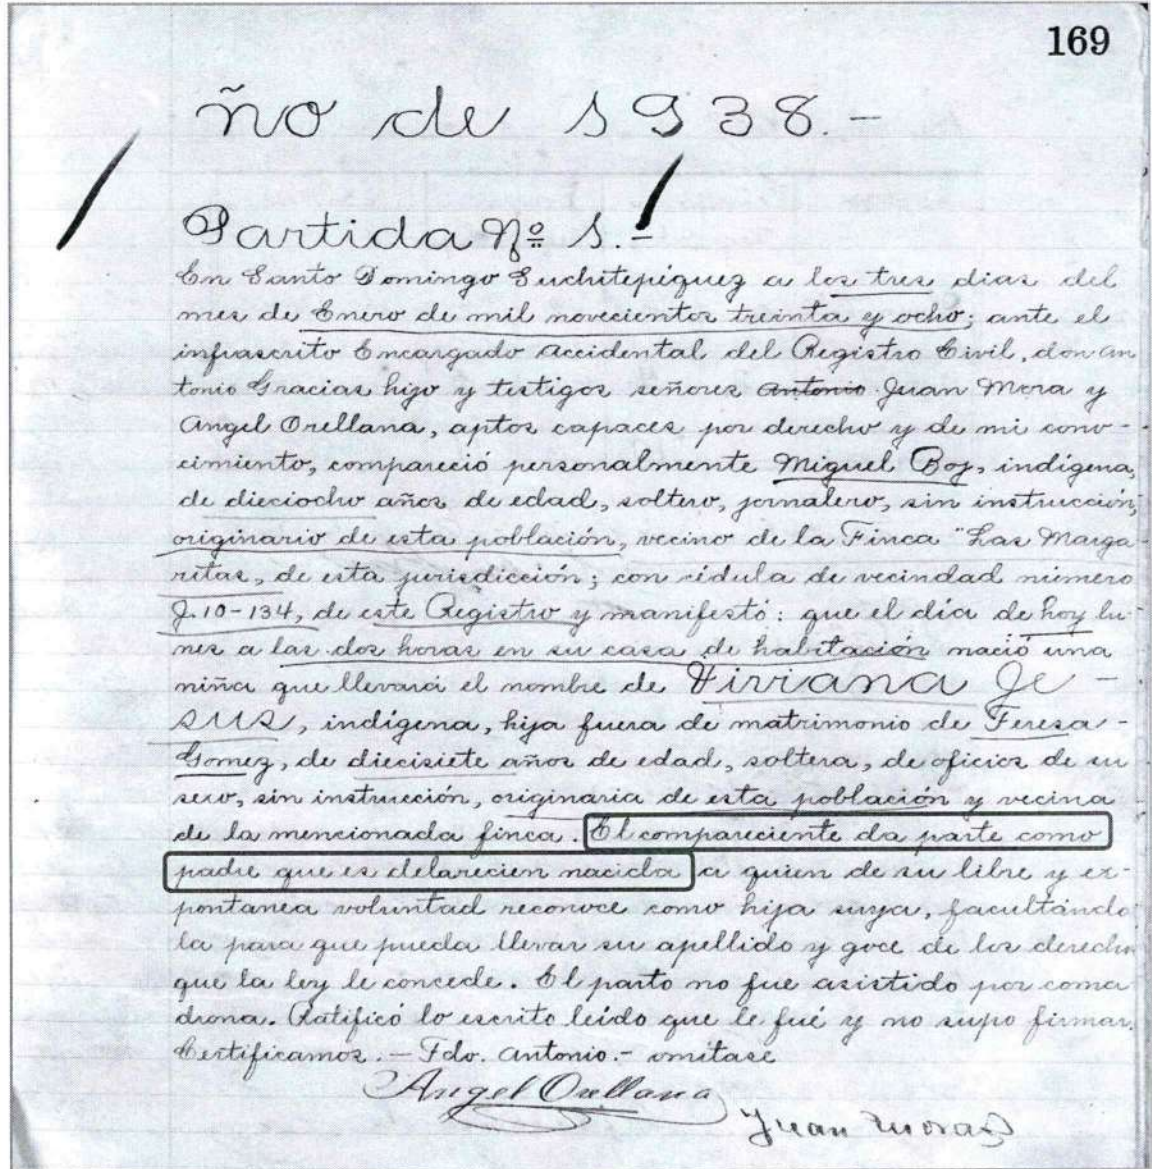 169
ño de 1938.-
Partida Nº 1.-
En Santo Domingo Suchitepiquez a los tres dias del
mes de Enero de mil novecientos treinta y ocho; ante el
infrascrito Encargado accidental del Registro Civil, don An
tonio Gracias hijo y testigos señores Antonio Juan Mora y
Angel Orellana, aptos capaces por derecho y de mi cono-
cimiento, compareció personalmente Miguel Boj, indígena,
de dieciocho años de edad, soltero, jornalero, sin instrucción,
originario de esta población, vecino de la Finca "Las Marga-
ritas, de esta jurisdicción; con cédula de vecindad número
J.10-134, de este Registro y manifestó: que el día de hoy lu-
nes a las dos horas en su casa de habitación nació una
niña que llevará el nombre de Viviana Je-
sus, indígena, hija fuera de matrimonio de Teresa-
Gomez, de diecisiete años de edad, soltera, de oficios de su
sexo, sin instrucción, originaria de esta población y vecina
de la mencionada finca. El compareciente da parte como
padre que es delarecien nacida a quien de su libre y ex-
pontanea voluntad reconoce como hija suya, facultándo
la para que pueda llevar su apellido y goce de los derechos
que la ley le concede. El parto no fue asistido por coma
drona. Ratificó lo escrito leído que le fué y no supo firmar.
Certificamos.- Fdo. Antonio.- omitase
Angel Orellana
Juan Mora